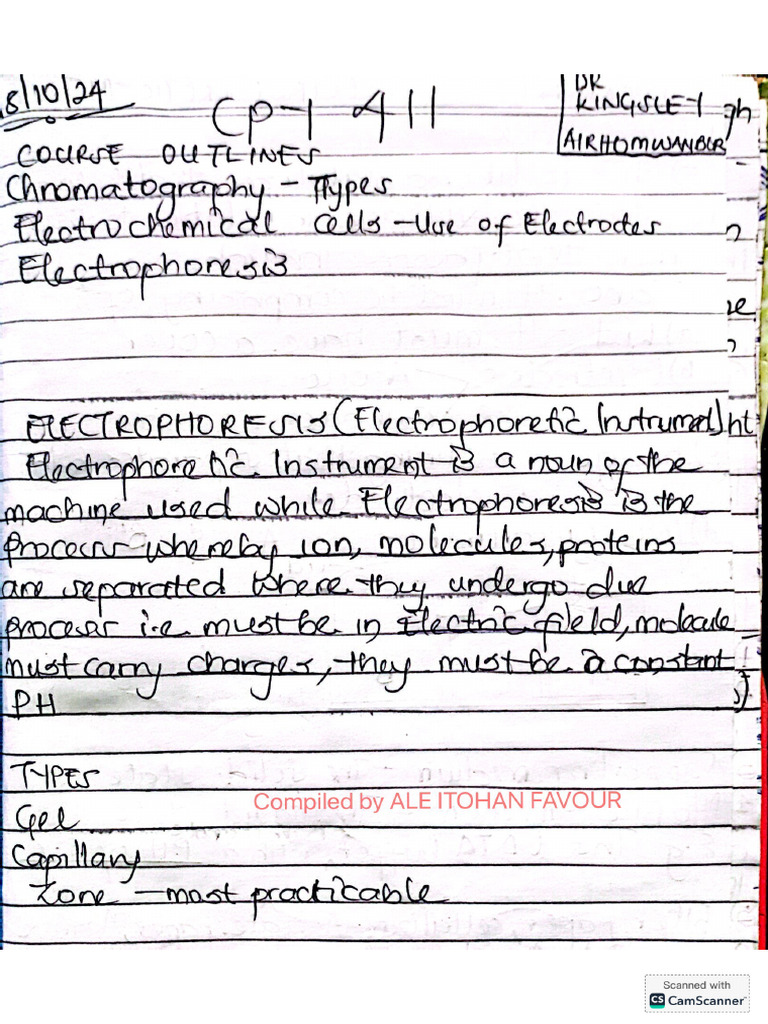 8/10/24
CPY 411
DR
KINGSLEY
AIRHOMWANBOR
COURSE OUTLINES
Chromatography - Types
Electrochemical Cells - Use of Electrodes
Electrophoresis
ELECTROPHORESIS (Electrophoretic Instrument)
Electrophoretic Instrument is a noun of the
machine used while Electrophoresis is the
Process whereby ion, molecules, proteins
are separated where they undergo due
process i.e must be in Electric field, molecule
must carry charges, they must be a constant
PH
TYPES
Gel
Capillary
Zone - most practicable
Compiled by ALE ITOHAN FAVOUR
Scanned with
CS CamScanner